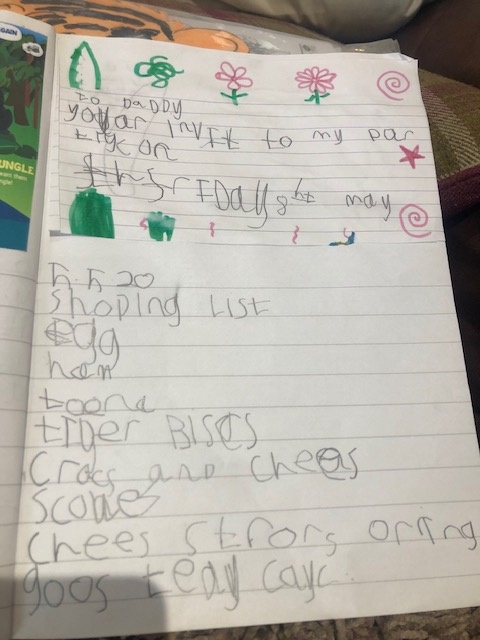 GAIN
UNGLE
want them
ngle!
to DaDDy
youar invit to my par
ty on
thsriDay 8ht may
5.5.20
Shoping List
egg
ham
toona
tiger BISCS
Cracs and chees
scones
chees strors oring
goos teday cayc